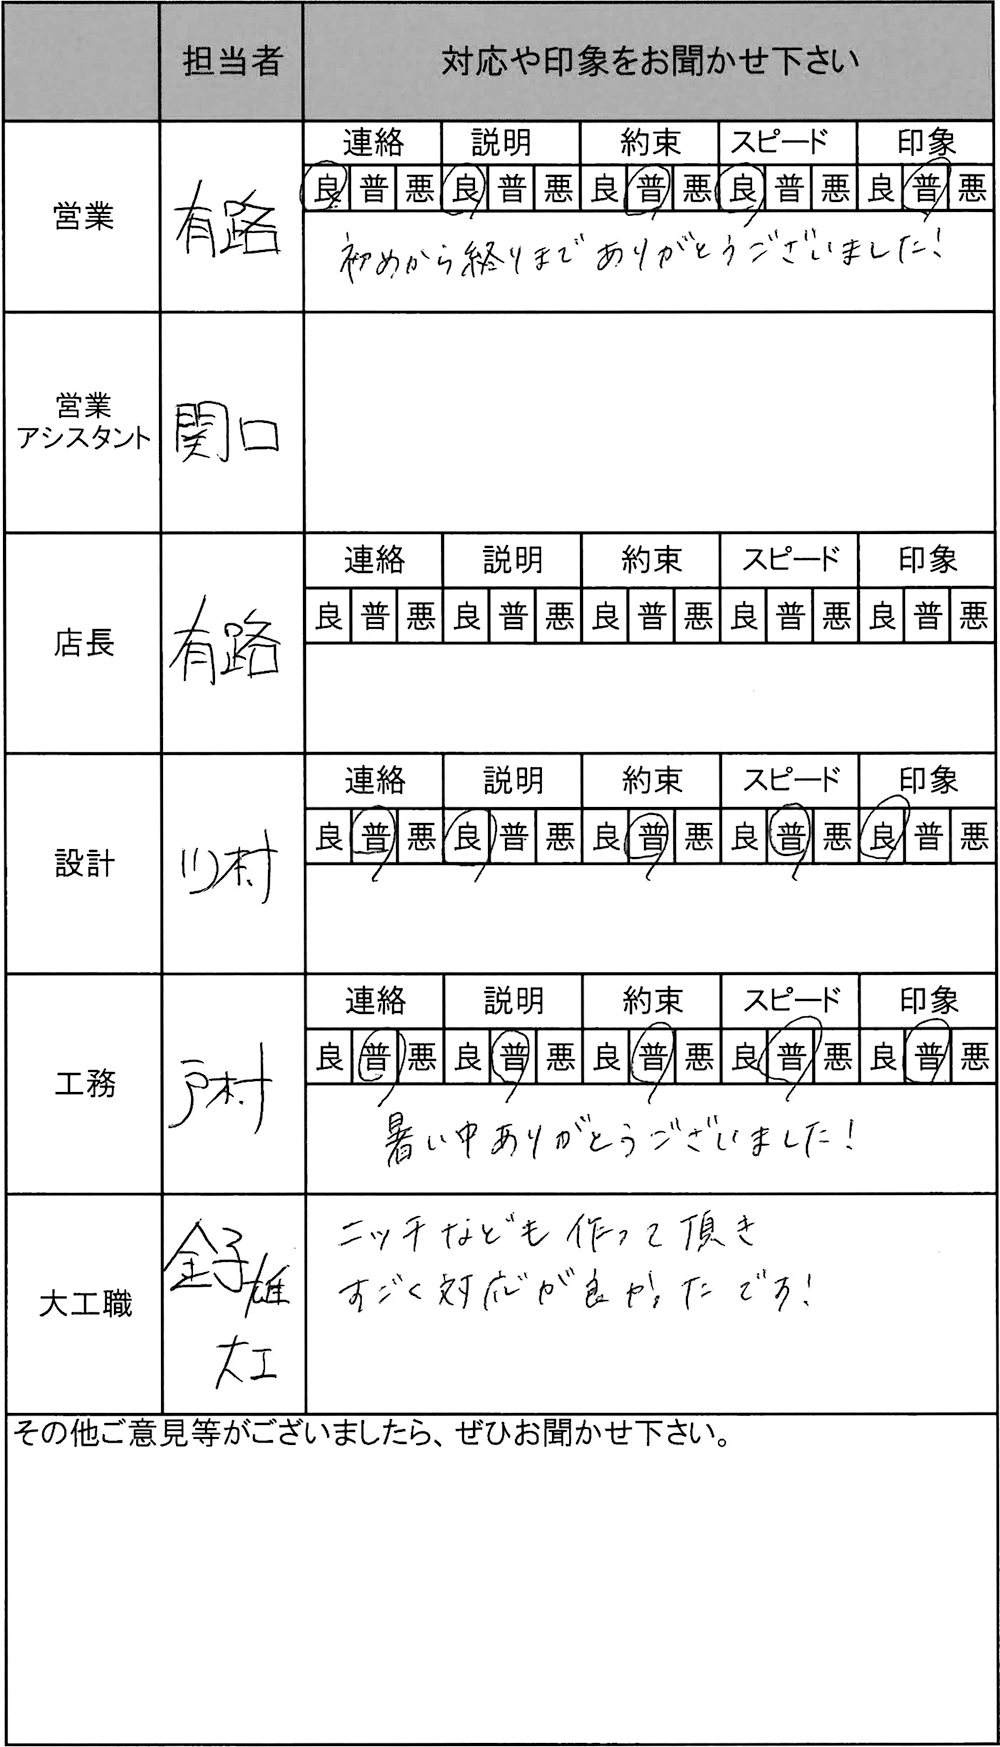 担当者 対応や印象をお聞かせ下さい
連絡 説明 約束 スピード 印象
良 普 悪 良 普 悪 良 普 悪 良 普 悪 良 普 悪
営業 有路
初めから終りまでありがとうございました!
営業
アシスタント 関口
連絡 説明 約束 スピード 印象
良 普 悪 良 普 悪 良 普 悪 良 普 悪 良 普 悪
店長 有路
連絡 説明 約束 スピード 印象
良 普 悪 良 普 悪 良 普 悪 良 普 悪 良 普 悪
設計 川村
連絡 説明 約束 スピード 印象
良 普 悪 良 普 悪 良 普 悪 良 普 悪 良 普 悪
工務 戸村
暑い中ありがとうございました!
ニッチなども作って頂き
大工職 金子雄
すごく対応が良かったです!
大工
その他ご意見等がございましたら、ぜひお聞かせ下さい。